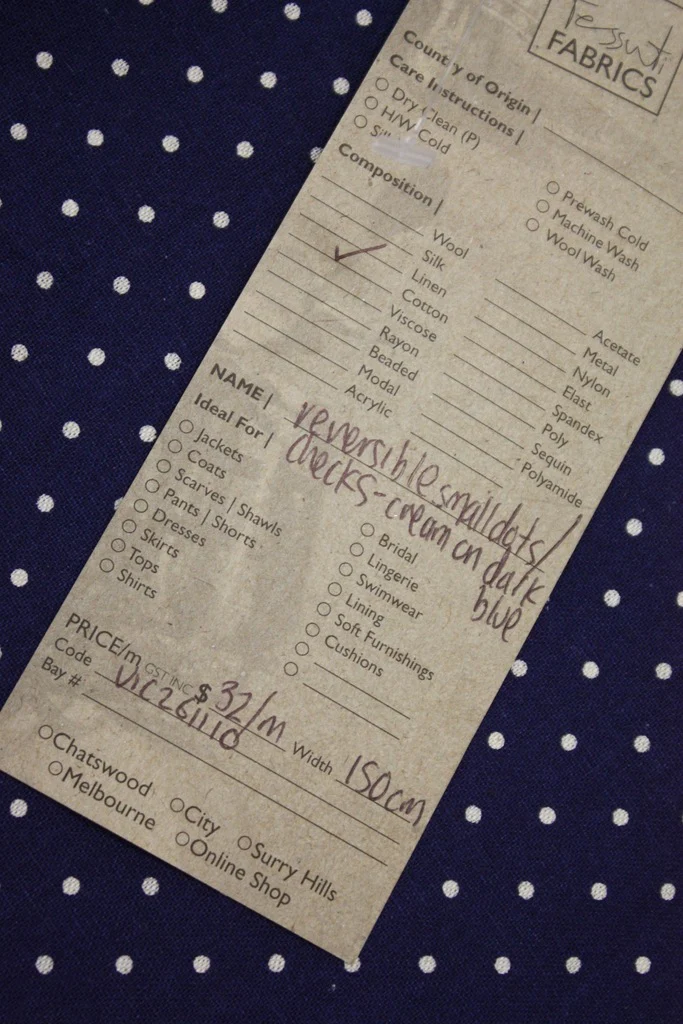 Tessuti
FABRICS
Country of Origin |
Care Instructions |
Dry Clean (P)
H/W Cold
Prewash Cold
Machine Wash
Wool Wash
Composition |
Wool
Silk
✓ Linen
Cotton
Viscose
Rayon
Beaded
Modal
Acrylic
Acetate
Metal
Nylon
Elast
Spandex
Poly
Sequin
Polyamide
NAME | reversible small dots/
checks - cream on dark
blue
Ideal For |
Jackets
Coats
Scarves | Shawls
Pants | Shorts
Dresses
Skirts
Tops
Shirts
Bridal
Lingerie
Swimwear
Lining
Soft Furnishings
Cushions
PRICE/m GST INC $ 32/m Width 150cm
Code VIC261110
Bay #
Chatswood
City
Surry Hills
Melbourne
Online Shop